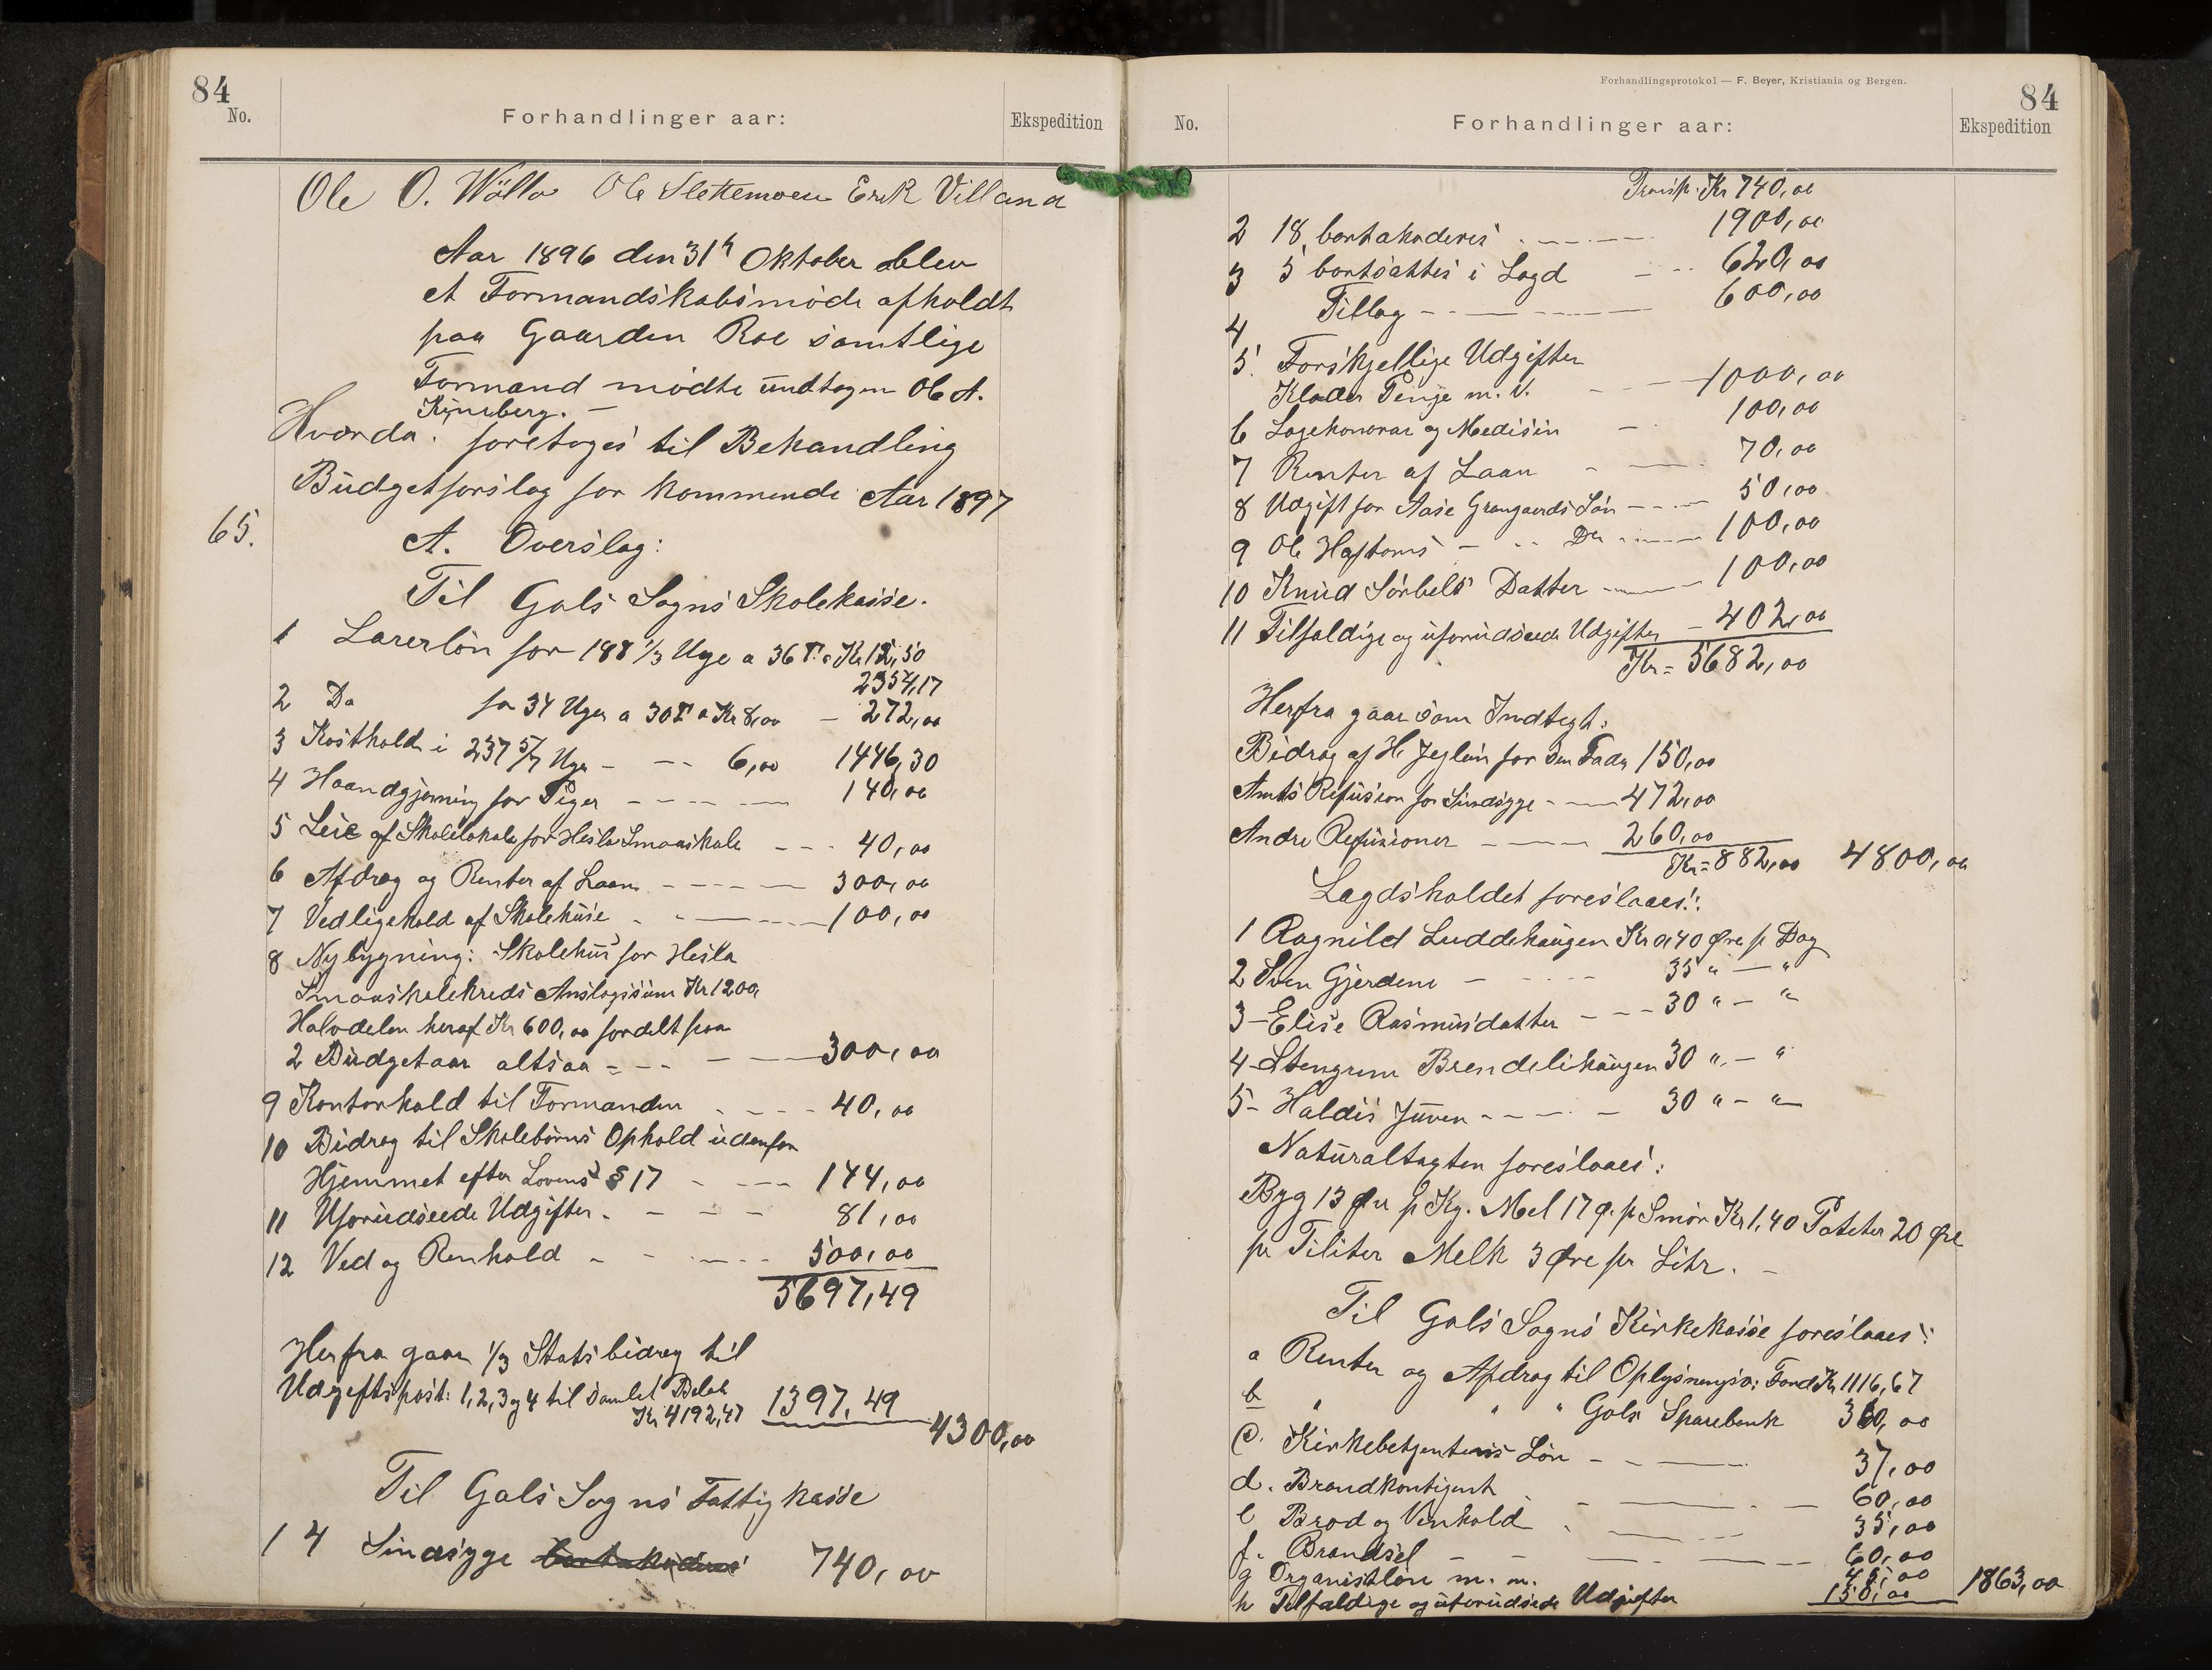 84
No.
Forhandlinger aar:
Ekspedition
Ole O. Wøllo Ole Slettemoen Erik Villand
Aar 1896 den 31te Oktober blev
et Formandskabsmøde afholdt
paa Gaarden Roe samtlige
Formænd mødte undtagen Ole A.
Kjnsberg. –
Hvorda. foretages til Behandling
Budgetforslag for kommende Aar 1897
65.
A. Overslag:
Til Gols Sogns Skolekasse.
1 Lærerløn for 188 1/3 Uge a 36 T. a Kr 12,50
2354,17
2 Do for 34 Uger a 30 T a Kr 8,00 – 272,00
3 Kosthold i 237 5/7 Uger – – – 6,00 1446,30
4 Haandgjerning for Piger – – – – 140,00
5 Leie af Skolelokale for Hesla Smaaskole – – – 40,00
6 Afdrag og Renter af Laan – – – – 300,00
7 Vedligehold af Skolehuse – – – – 100,00
8 Nybygning: Skolehus for Hesla
Smaaskolekreds Anslagssum Kr 1200,
Halvdelen heraf Kr 600,00 fordelt paa
2 Budgetaar altsaa – – – – 300,00
9 Kontorhold til Formanden – – – 40,00
10 Bidrag til Skolebørns Ophold udenfor
Hjemmet efter Lovens § 17 – – – 144,00
11 Uforudseede Udgifter – – – – 81,00
12 Ved og Renhold – – – – 500,00
5697,49
Herfra gaar 1/3 Statsbidrag til
Udgiftspost: 1, 2, 3 og 4 til samlet Beløb
Kr 4192,47 1397,49
4300,00
Til Gols Sogns Fattigkasse
1 4 Sindsyge bortakorderes 740,00
Forhandlingsprotokol — F. Beyer, Kristiania og Bergen.
84
No.
Forhandlinger aar:
Ekspedition
Transp. Kr 740,00
2 18 bortakoderes – – – 1900,00
3 5 bortsattes i Lægd – – 620,00
4 Tillæg – – – – 600,00
5. Forskjellige Udgifter
Klæder Penge m. v. – – – 1000,00
6 Lægehonorar og Medisin – 100,00
7 Renter af Laan – – 70,00
8 Udgift for Aase Grøngaards Søn – – – 50,00
9 Ole Haftorns – – Do – – 100,00
10 Knud Sørbøls Datter – – 100,00
11 Tilfældige og uforudseede Udgifter – 402,00
Kr = 5682,00
Herfra gaar som Indtægt:
Bidrag af H. Jeglun for sin Fader 150,00
Amts Refusion for Sindsyge – – 472,00
Andre Refusioner – – 260,00
Kr = 882,00 4800,00
Lægdsholdet foreslaaes:
1 Ragnild Luddehaugen Kr 0,40 Øre pr Dag
2 Sven Gjerdene – – – 35 " – "
3 – Elise Rasmusdatter – – – 30 " – "
4 – Stengrim Brendelihaugen 30 " – "
5 – Haldis Juven – – – – 30 " – "
Naturaltagten foreslaaes:
Byg 13 Øre pr Kg. Mel 17 Ø. pr Smør Kr 1,40 Poteter 20 Øre
pr Tiliter Melk 3 Øre pr Liter. –
Til Gols Sogns Kirkekasse foreslaaes:
a Renter og Afdrag til Oplysningsv. Fond Kr 1116,67
b " " " Gols Sparebank 360,00
c. Kirkebetjentenes Løn – – – 37,00
d. Brandkontigent – – – 60,00
e Brød og Vinhold – – – 35,00
f. Brændsel – – – – 60,00
g Organistløn m. m. 45,00
h Tilfældige og uforudseede Udgifter 150,00 1863,00